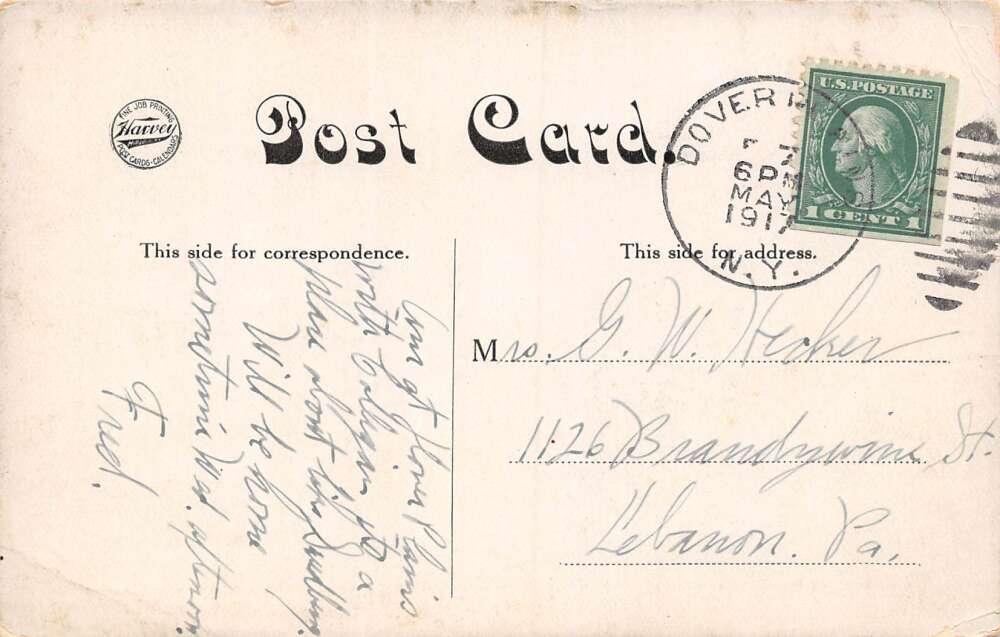 FINE JOB PRINTING
Harvey
POST CARDS-CALENDARS
Post Card.
DOVER
6 PM
MAY
1917
N.Y.
U.S. POSTAGE
1 CENT 1
This side for correspondence.
Am at Dover Plains
with
place about like
Will be home
sometime Wed. afternoon
Fred.
This side for address.
Mrs. G. W. Hecker
1126 Brandywine St.
Lebanon. Pa.